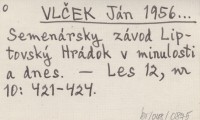 o
VLČEK Ján 1956...
Semenársky závod Lip-
tovský Hrádok v minulosti
a dnes. — Les 12, nr
10: 421-424.